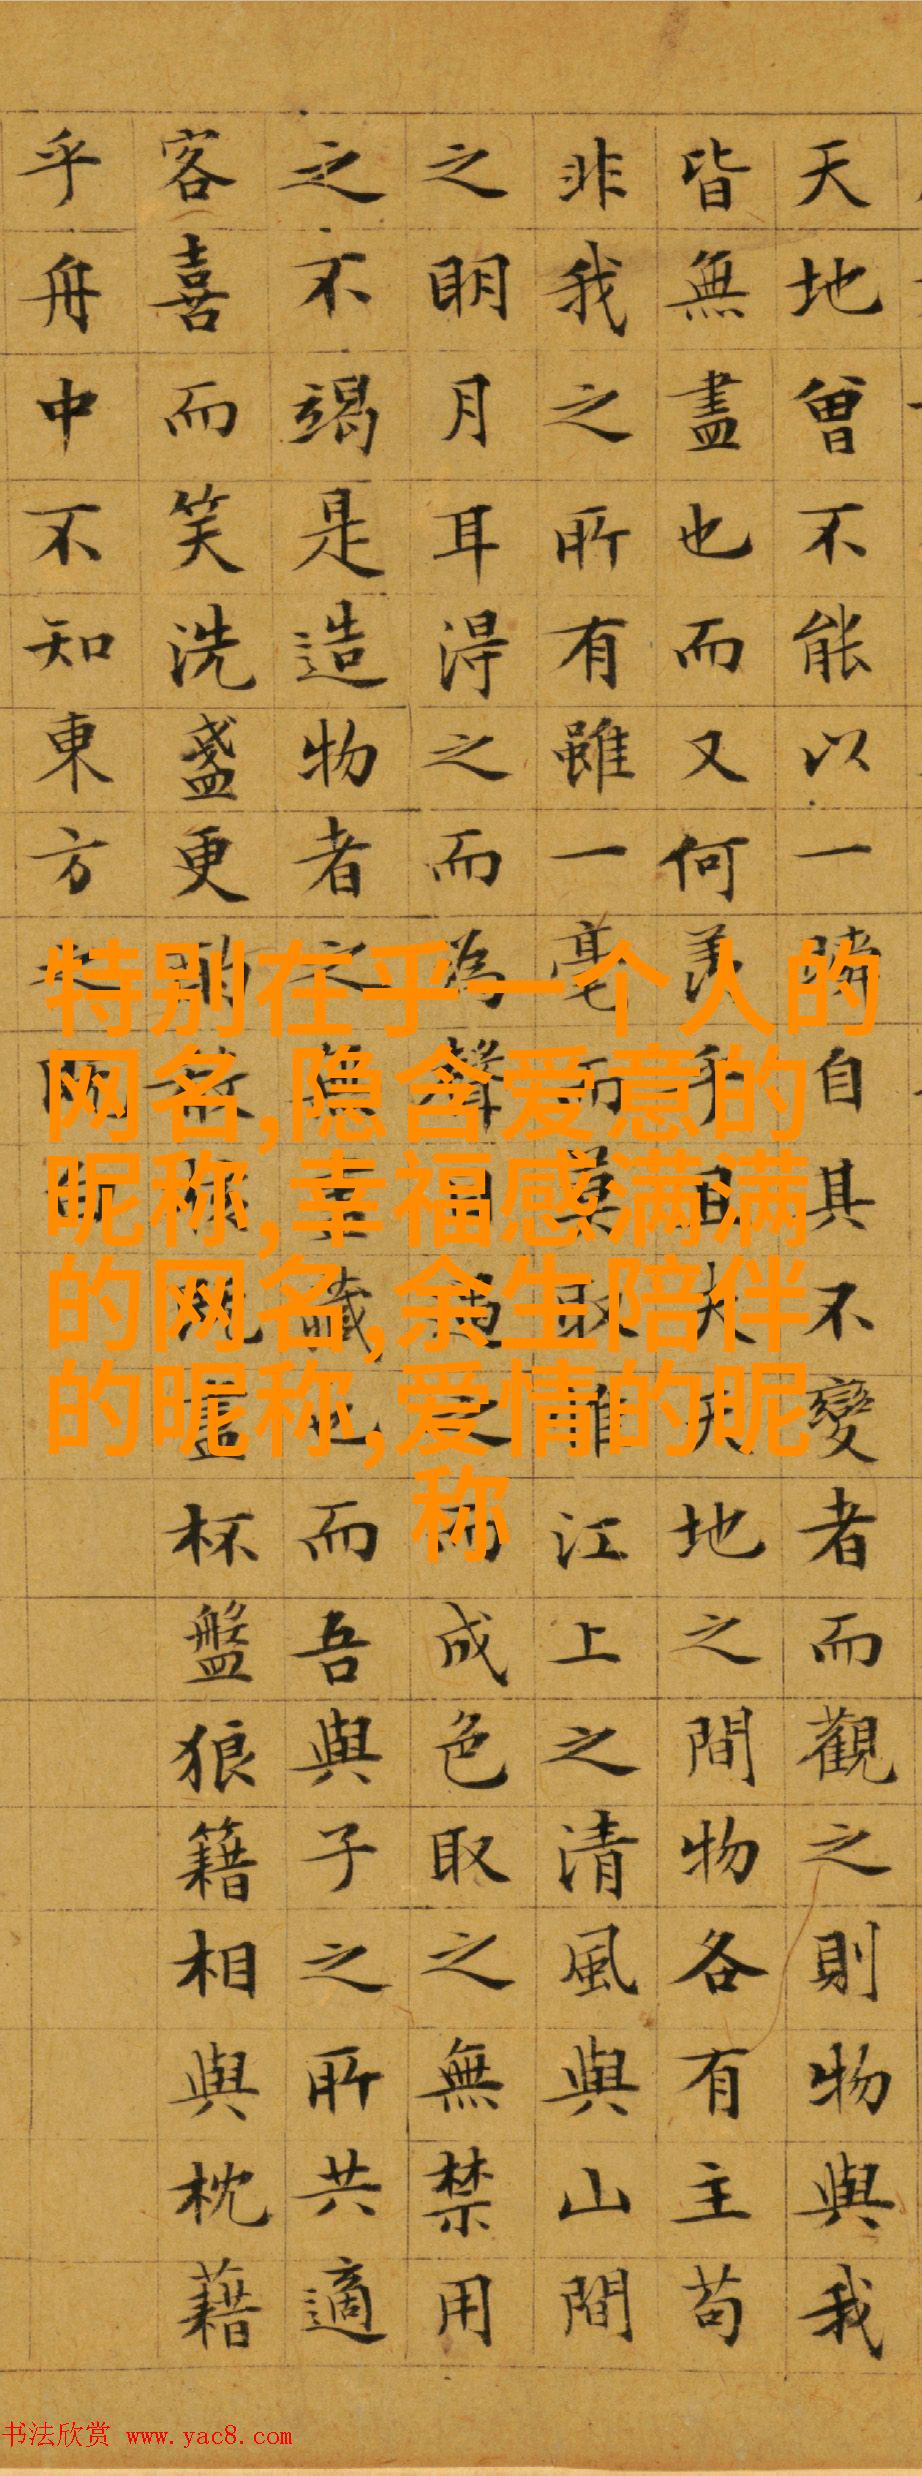 天地曾不能以一瞬自其不變者而觀之則物與我
皆無盡也而又何羨乎且夫天地之間物各有主苟
非我之所有雖一毫而莫取江上之清風與山間
之明月耳得之而為聲目遇之而成色取之無禁用
之不竭是造物者之無盡藏也而吾與子之所共適
客喜而笑洗盞更酌盡杯盤狼籍相與枕藉
乎舟中不知東方之既白
特别在乎一个人的
网名,隐含爱意的
昵称,幸福感满满
的网名,余生陪伴
的昵称,爱情的昵
称
书法欣赏 www.yac8.com